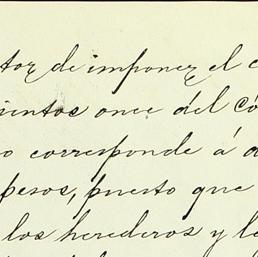 tor de imponer el c
ientos once del Có
o corresponde á a
pesos, puesto que
los herederos y la